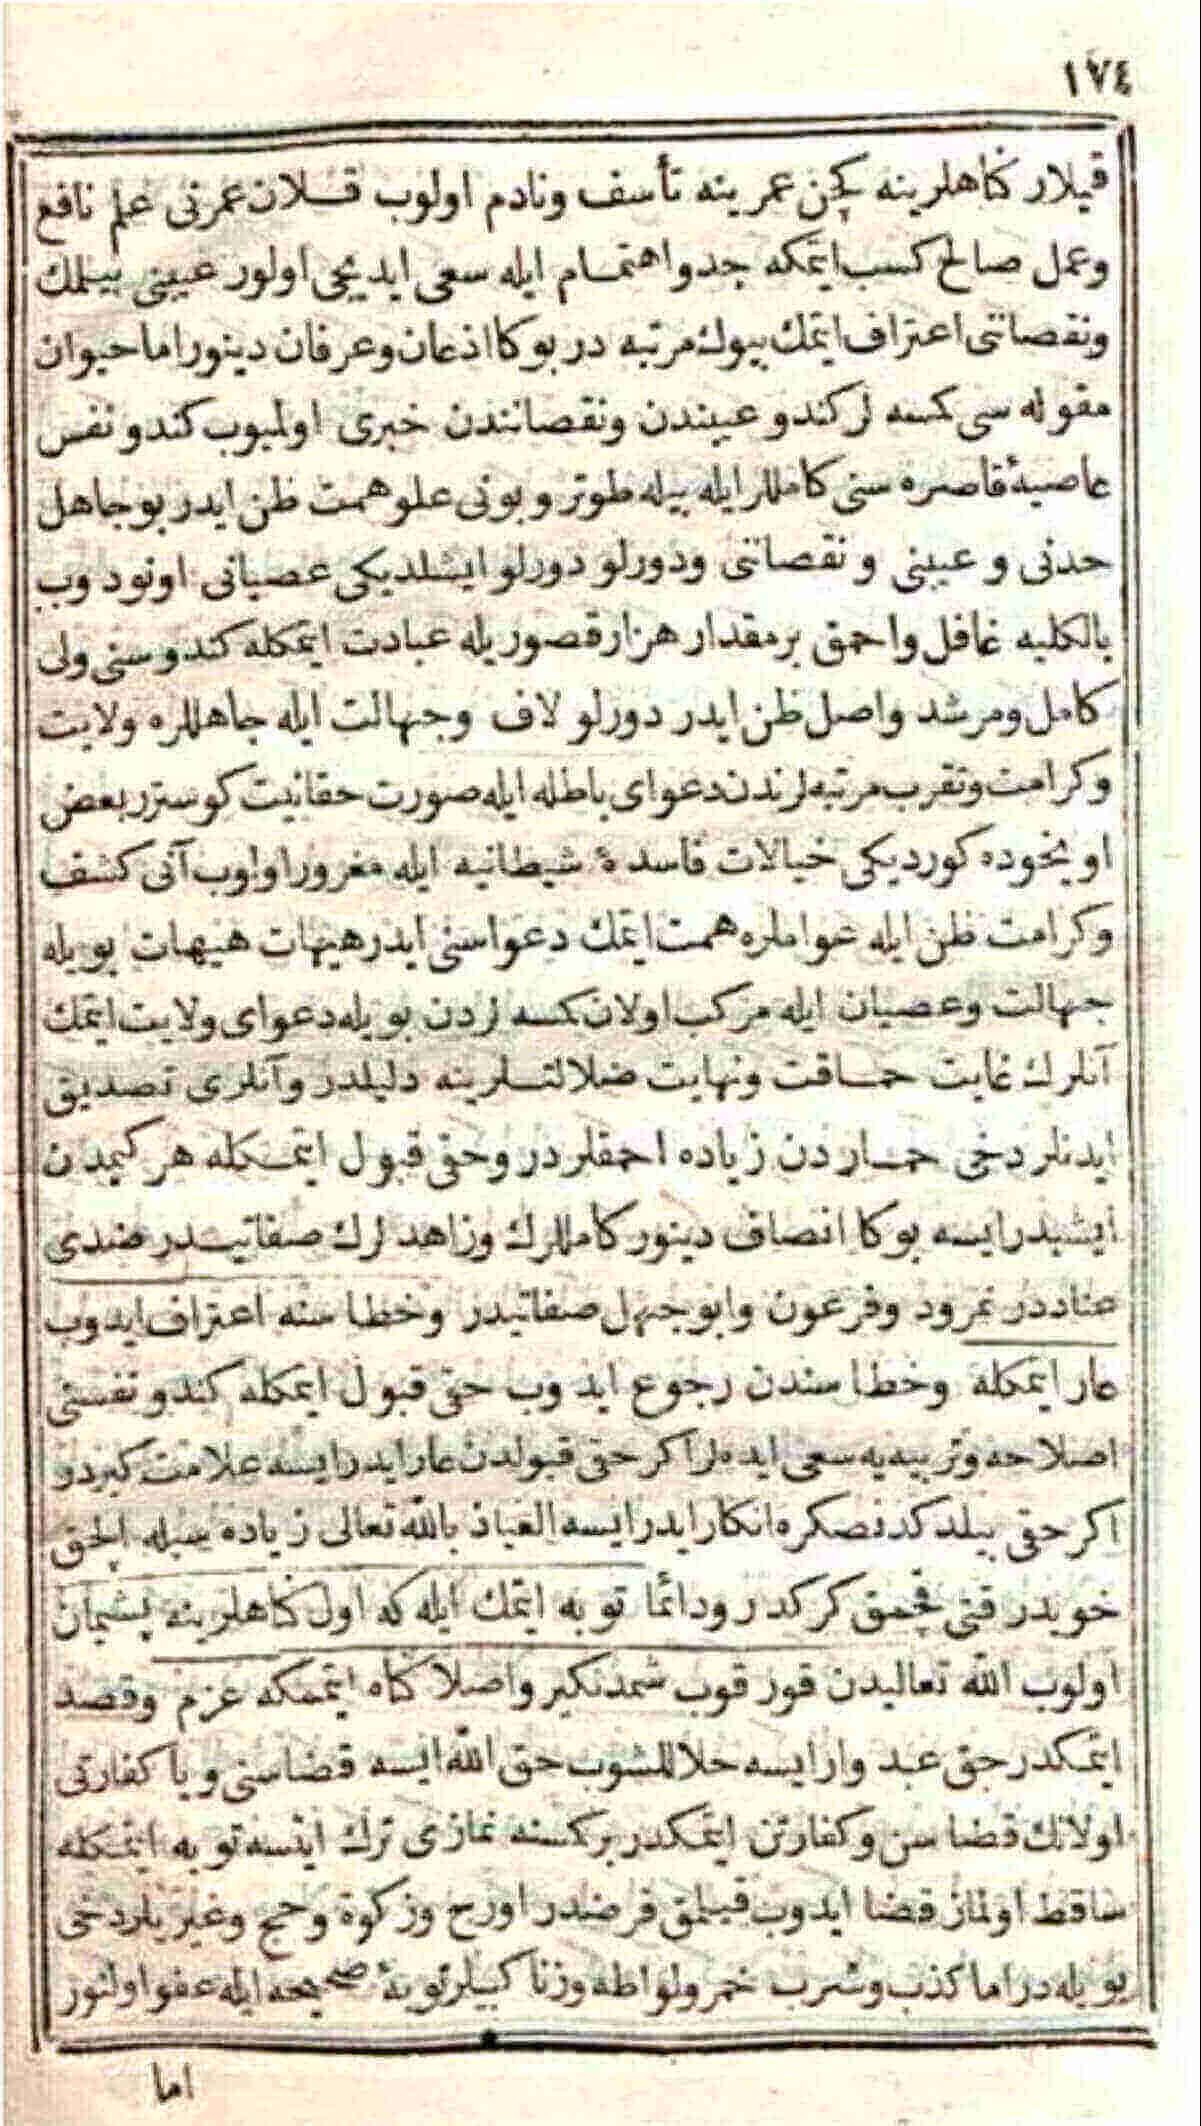 ١٧٤
قیلار کناهلرینه کچن عمرینه تأسف ونادم اولوب قلان عمرنی علم نافع
وعمل صالح کسب ایتمکه جد واهتمام ایله سعی ایدیجی اولور عیبنی بیلمك
ونقصاننی اعتراف ایتمك بیوك مرتبه در بوکا اذعان وعرفان دینور اما حیوان
مقوله سی کمسه لر کندو عیبندن ونقصانندن خبری اولمیوب کندو نفس
عاصیهٔ قاصره سنی کاملر ایله بیله طوتر و بونی علو همت ظن ایدر بو جاهل
حدنی و عیبنی و نقصاننی ودورلو دورلو ایشلدیکی عصیانی اونودوب
بالکلیه غافل واحمق بر مقدار هزار قصور یله عبادت ایتمکله کندوسنی ولی
کامل ومرشد واصل ظن ایدر دورلو لاف وجهالت ایله جاهللره ولایت
وکرامت وتقرب مرتبه لرندن دعوای باطله ایله صورت حقانیت کوستر بعض
اویخوده کوردیکی خیالات فاسدهٔ شیطانیه ایله مغرور اولوب آنی کشف
وکرامت ظن ایله عوامله همت ایتمك دعواسنی ایدر هیهات هیهات بویله
جهالت وعصیان ایله مرکب اولان کمسه لردن بویله دعوای ولایت ایتمك
آنلرك غایت حماقت ونهایت ضلالتلرینه دلیلدر وآنلری تصدیق
ایدنلر دخی حماردن زیاده احمقلردر وحقی قبول ایتمکله هر کیمدن
ایشیدر ایسه بوکا انصاف دینور کاملرك وزاهدلرك صفاتیدر ضدی
عناددر نمرود وفرعون وابوجهل صفاتیدر وخطاسنه اعتراف ایدوب
عار ایتمکله وخطاسندن رجوع ایدوب حقی قبول ایتمکله کندو نفسنی
اصلاحه وتربیه یه سعی ایده لر اکر حقی قبولدن عار ایدر ایسه علامت کبردر
اکر حقی بیلدکدنصکره انکار ایدر ایسه العیاذ بالله تعالی زیاده الچق
خویدر قتی قچمق کرکدر ودائما توبه ایتمك ایله که اول کناهلرینه پشیمان
اولوب الله تعالیدن قورقوب شمدنکیرو اصلا کناه ایتمکه عزم وقصد
ایتمکدر حق عبد وار ایسه حلاللشوب حق الله ایسه قضاسنی ویا کفارتی
اولانك قضاسن وکفارتن ایتمکدر بر کسنه نمازی ترك ایتسه توبه ایتمکله
ساقط اولماز قضا ایدوب قیلمق فرضدر اورج وزکوة وحج وغیریلر دخی
بویله در اما کذب وشرب خمر ولواطه وزنا کبیلر توبهٔ صحیحه ایله عفو اولنور
اما